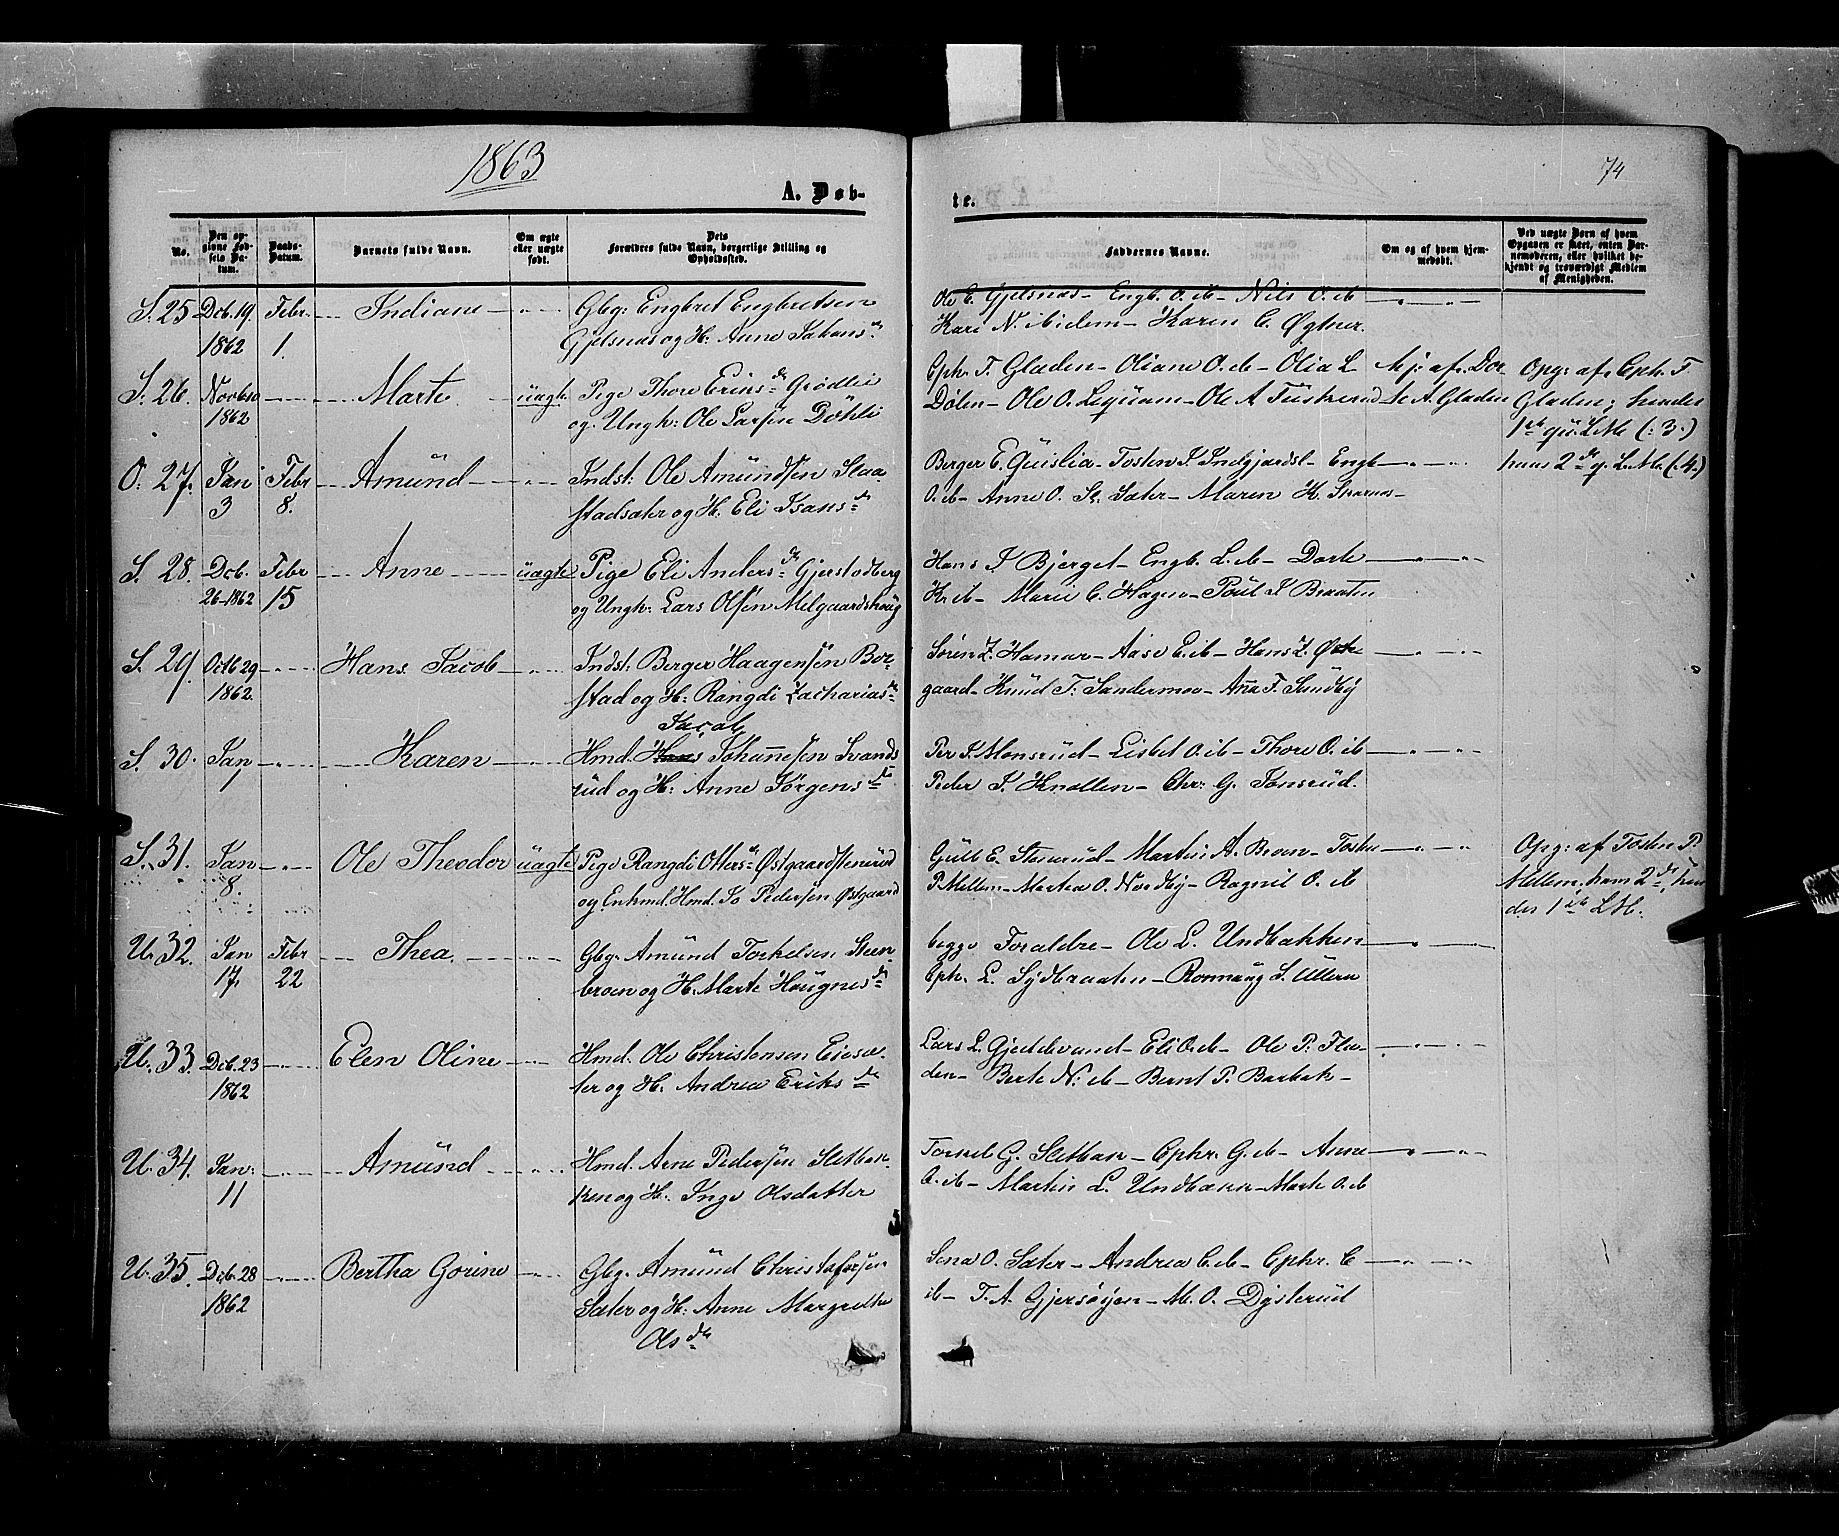 1863
74
A. Døb-
te.
No.
Den op-
givne Fød-
sels Da-
tum.
Daabs-
Datum.
Barnets fulde Navn.
Om ægte
eller uægte
født.
Dets
Forældres fulde Navn, borgerlige Stilling og
Opholdssted.
Faddernes Navne.
Om og af hvem hjem-
medøbt.
Ved uægte Børn af hvem
Opgaven er skeet, enten Bar-
nemoderen, eller hvilket be-
kjendt og troværdigt Medlem
af Menigheden.
S. 25 Dcb. 19 Febr. Indiane Gbg: Engbret Engbretsen
1862 1. Gjelsnas og H: Anne Johans dr
Ole E. Gjelsnas - Engb. O. ib - Nils O. ib
Kari N. ibidem - Karen C. Øgtner.
S. 26. Novb 10 Marte uagte Pige Thore Erins dr Grødlei
1862 og Ungk: Ole Larsen Döhli
Ephr. F. Gladen - Oliane O. ib - Olia L Hj: af. Dor- Opg: af. Eph. F
Dölen - Ole O. Lequam - Ole A. Tüstrend te A. Gladen Gladen; hendes
1ste qü. LM (: 3.)
O. 27. Jan Febr Amünd Indst: Ole Amündsen Staa-
3 8. stadsæter og H: Eli Isans dr
Berger E. Güislia - Tosten I. Indgjordst - Engb hans 2 de q. LM. (: 4.)
O. ib - Anne O. St. Sæter - Maren K. Skarnes -
S. 28. Dcb. Febr Anne uagte Pige Eli Anders dr Gjerstodberg
26-1862 15 og Ungk: Lars Olsen Melgaardshaug
Hans I Bjerget - Engb. L. ib - Dorte
K. ib - Marie C. Hagen - Poül I Braaten
S. 29. Octb 29 Hans Jacob Indst: Berger Haagensen Bor-
1862. stad og H: Rangdi Zacharias dr
Søren Z. Hamar - Aase E. ib - Hans Z. Øst
gaard - Knüd T. Sandermoe - Anne F. Sundby
Jacob
S. 30. Jan Karen Hmd. Hans Johannesen Svends
1 rud og H: Anne Jörgens dr
Per I. Monsrüd - Lisbet O. ib - Thore O. ib
Peder I. Knollen - Chr: G. Tønsrüd.
S. 31. Jan Ole Theodor uagte Pige Rangdi Otters dr Østgaardstenrüd
8. og Enkmd. Hmd. Jo Pedersen Østgaard
Güll E. Stenrüd - Martin A. Broen - Tosten Opg: af Tosten P.
P. Mellem - Martea O. Nordby - Ragnil O. ib Mellem. hans 2 de, hen
des 1ste LM.
U. 32. Jan Febr Thea Gbg: Amünd Torkelsen Steen-
17. 22 broen og H. Marte Haugnes dr
begge Foraldre - Ole L. Undbakken
Eph. L. Sydbraaten - Ronnaug S. Ullern
U. 33. Dcb. 23 Elen Oline Hmd. Ole Christensen Eiesæ-
1862 ter og H: Andrea Eriks dr
Lars L. Gjeddevand - Eli O. ib - Ole P. Fla-
den - Berte N. ib - Bernt P. Barbak -
U. 34. Jan: Amünd Hmd. Arne Pedersen Sletbak-
11 ken og H: Inge Olsdatter
Torkel G. Sletbak - Ephr. G. ib - Anne
O. ib - Martin L. Undbakk - Marte O. ib
U. 35. Dcb. 28 Bertha Gorine Gbg: Amünd Christofersen
1862 Sæter og H: Anne Margrethe
Ols dr
Sina O. Sæter - Andrea C. ib - Ephr. C
ib - T. A. Gjersøyen - M. O. Dysterüd